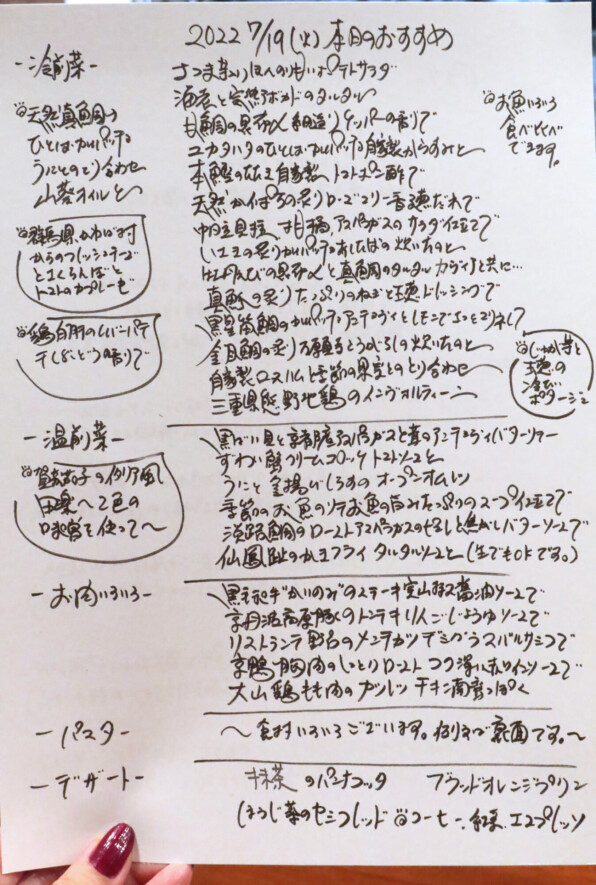 2022 7/19(火)本日のおすすめ
-冷前菜-
さつま芋のほんのり甘いポテトサラダ
海老と完熟アボカドのタルタル
甘鯛の昆布〆 細造り ケッパーの香りで
ユカタハタのひとはカルパッチョ自家製からすみと
本鰹のたたき自家製トマトポン酢で
天然かんぱちの炙りローズマリー香る漬だれで
帆立貝柱、甘桃、アスパラガスのサラダ仕立てで
いわしの炙りカルパッチョ
牡丹えびの昆布〆と真鯛のタルタルカヴィアと共に…
真鯵の炙りたっぷりのねぎと玉ねぎドレッシングで
金目鯛の炙り万願寺とうがらしの炊いたのと
自家製ロースハムと季節の果実とのとり合わせ
三重県熊野地鶏のインヴォルティーニ
天然真鯛の
ひとはカルパッチョ
うにとのとり合わせ
山葵オイルと
お魚いろいろ
食べくらべ
できます。
群馬県かわば村
からのフレッシュチーズ
とさくらんぼと
トマトのカプレーゼ
鶏白肝のムースパテ
干しぶどうの香りで
冷たい
ポタージュ
-温前菜-
ずわい蟹クリームコロッケ トマトソースと
うにと釜揚げしらすのオープンオムレツ
季節のお魚のソテお魚の旨みたっぷりのスープ仕立てで
淡路鯛のローストアスパラガスのせ 焦がしバターソースで
仙鳳趾のかきフライ タルタルソースと(生でもOKです。)
賀茂茄子のイタリア風
田楽〜2色の
味噌を使って〜
-お肉いろいろ-
黒毛和牛“かいのみ”のステーキ実山椒醤油ソースで
京丹波高原豚のトンテキりんごじょうゆソースで
リストランテ野呂のメンチカツ デミグラスバルサミコで
京鴨胸肉のしっとりロースト コク深い赤ワインソースで
大山鶏もも肉のカツレツ チキン南蛮っぽく
-パスタ-
〜食材いろいろございます。くわしくは裏面です。〜
-デザート-
抹茶のパンナコッタ ブラッドオレンジプリン
ほうじ茶のセミフレッド コーヒー、紅茶、エスプレッソ